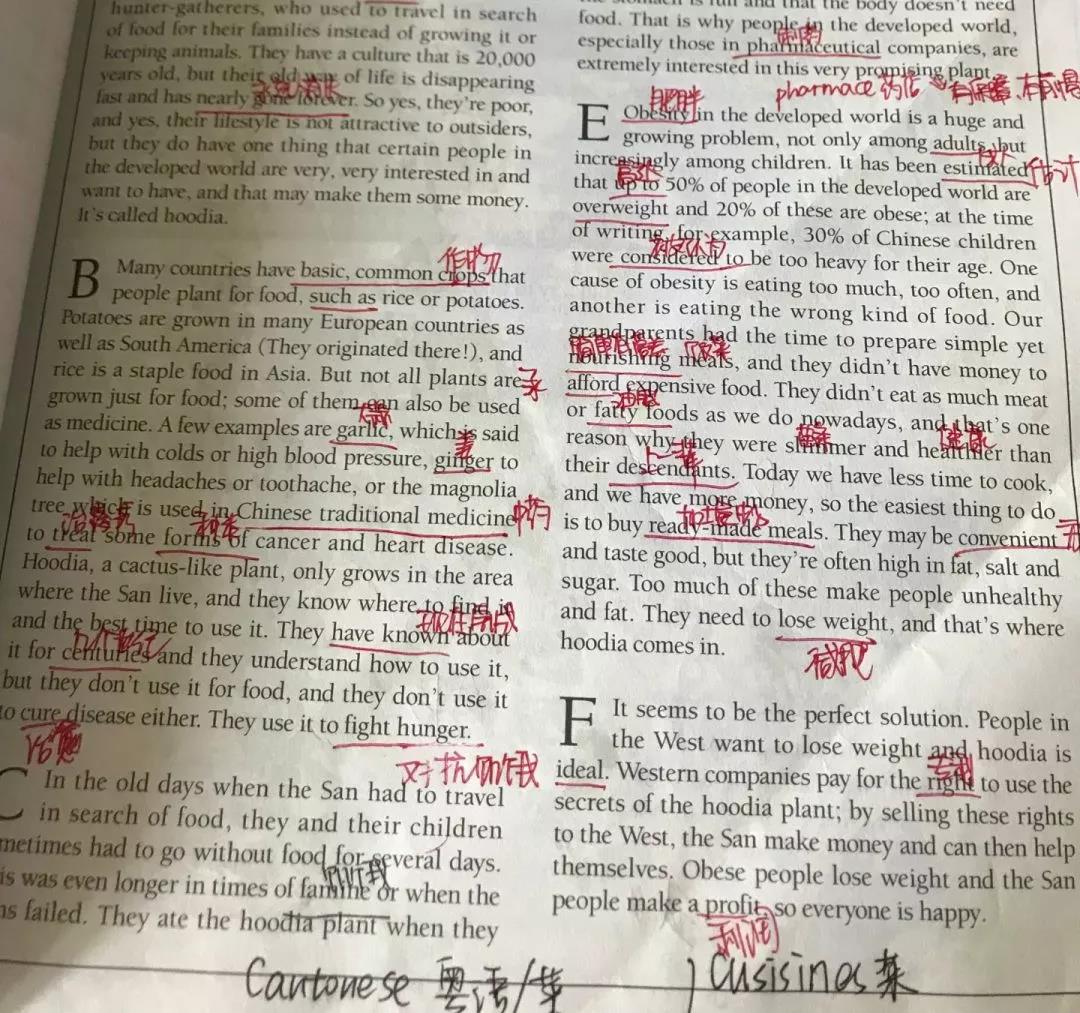 hunter-gatherers, who used to travel in search
of food for their families instead of growing it or
keeping animals. They have a culture that is 20,000
years old, but their old way of life is disappearing
永远消失
fast and has nearly gone forever. So yes, they're poor,
and yes, their lifestyle is not attractive to outsiders,
but they do have one thing that certain people in
the developed world are very, very interested in and
want to have, and that may make them some money.
It's called hoodia.
作物
B Many countries have basic, common crops that
people plant for food, such as rice or potatoes.
Potatoes are grown in many European countries as
well as South America (They originated there!), and
rice is a staple food in Asia. But not all plants are
grown just for food; some of them can also be used
as medicine. A few examples are garlic, which is said
姜
to help with colds or high blood pressure, ginger to
help with headaches or toothache, or the magnolia
tree which is used in Chinese traditional medicine 中药
to treat some forms of cancer and heart disease.
Hoodia, a cactus-like plant, only grows in the area
where the San live, and they know where to find it
and the best time to use it. They have known about
几个世纪
it for centuries and they understand how to use it,
but they don't use it for food, and they don't use it
to cure disease either. They use it to fight hunger.
治愈
对抗饥饿
C In the old days when the San had to travel
in search of food, they and their children
metimes had to go without food for several days.
饥饿
is was even longer in times of famine or when the
ns failed. They ate the hoodia plant when they
the stomach is full and that the body doesn't need
food. That is why people in the developed world,
制药
especially those in pharmaceutical companies, are
extremely interested in this very promising plant.
pharmace 药店
肥胖
E Obesity in the developed world is a huge and
growing problem, not only among adults, but
increasingly among children. It has been estimated 估计
高达
that up to 50% of people in the developed world are
overweight and 20% of these are obese; at the time
of writing, for example, 30% of Chinese children
were considered to be too heavy for their age. One
cause of obesity is eating too much, too often, and
another is eating the wrong kind of food. Our
grandparents had the time to prepare simple yet
nourishing meals, and they didn't have money to
afford expensive food. They didn't eat as much meat
油腻
or fatty foods as we do nowadays, and that's one
健康
reason why they were slimmer and healthier than
their descendants. Today we have less time to cook,
and we have more money, so the easiest thing to do
is to buy ready-made meals. They may be convenient
and taste good, but they're often high in fat, salt and
sugar. Too much of these make people unhealthy
and fat. They need to lose weight, and that's where
减肥
hoodia comes in.
F It seems to be the perfect solution. People in
the West want to lose weight and hoodia is
ideal. Western companies pay for the right to use the
secrets of the hoodia plant; by selling these rights
to the West, the San make money and can then help
themselves. Obese people lose weight and the San
people make a profit, so everyone is happy.
利润
Cantonese 粤语/菜
Cusisines 菜